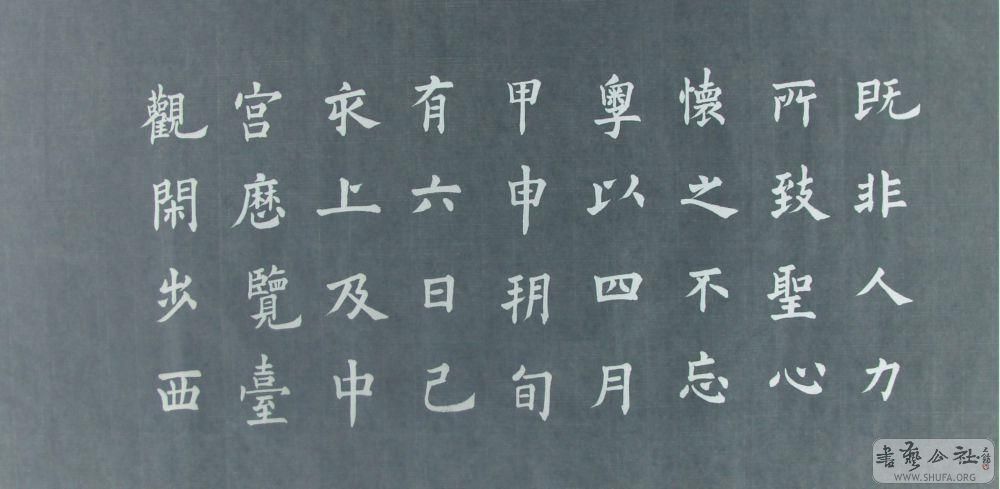 既非人力
所致聖心
懷之不忘
粵以四月
甲申朔旬
有六日己
亥上及中
宮歷覽臺
觀閑步西
書藝公社
WWW.SHUFA.ORG